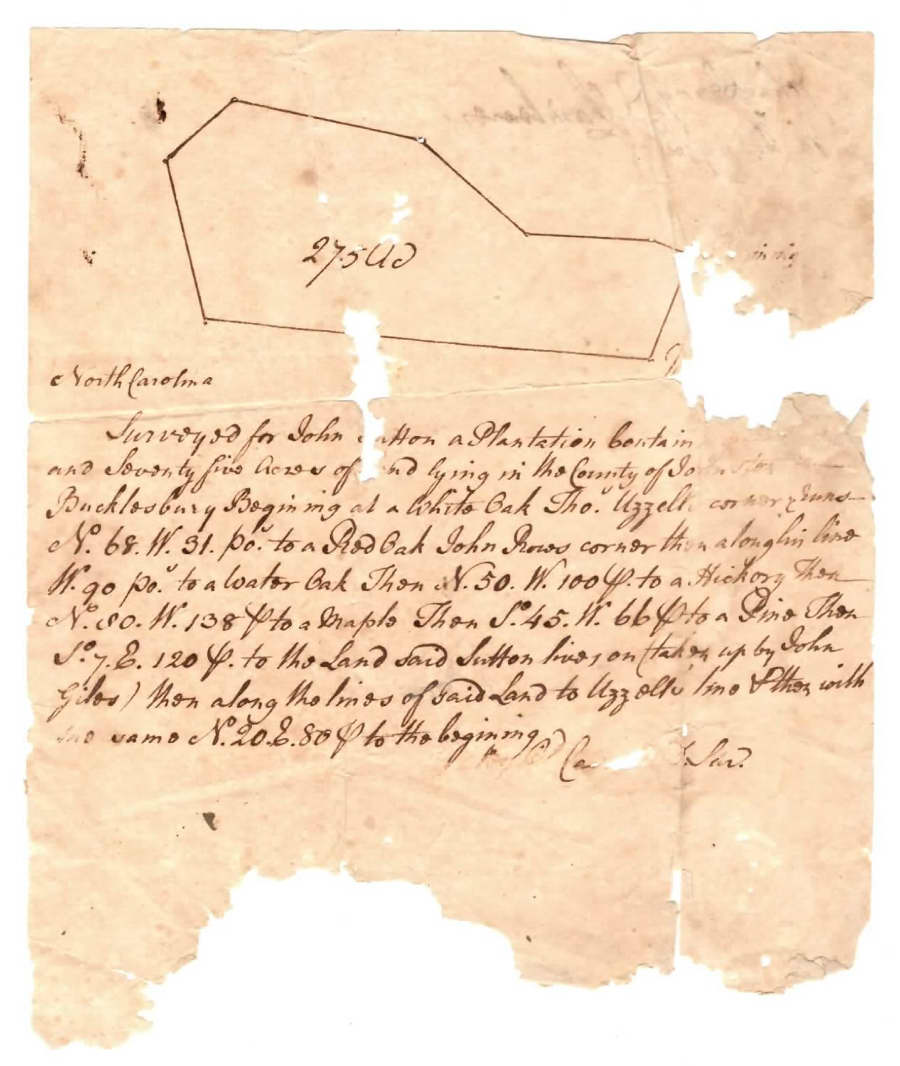 275 Ac
North Carolina
Surveyed for John Sutton a Plantation Contain
and Seventy five Acres of Land lying in the County of Johnston
Bucklesbury Begining at a White Oak Tho.s Uzzells corner & runs
No. 68. W. 31. po.s to a Red Oak John Rows corner then along his line
W. 90 po.s to a Water Oak Then N. 50. W. 100 P. to a Hickory Then
No. 80. W. 138 P to a Maple Then So. 45. W. 66 P to a Pine Then
So. 7. E. 120 P. to the Land said Sutton lives on (taken up by John
Giles) then along the lines of said Land to Uzzells line & then with
the same No. 20. E. 80 P to the begining
Sur.